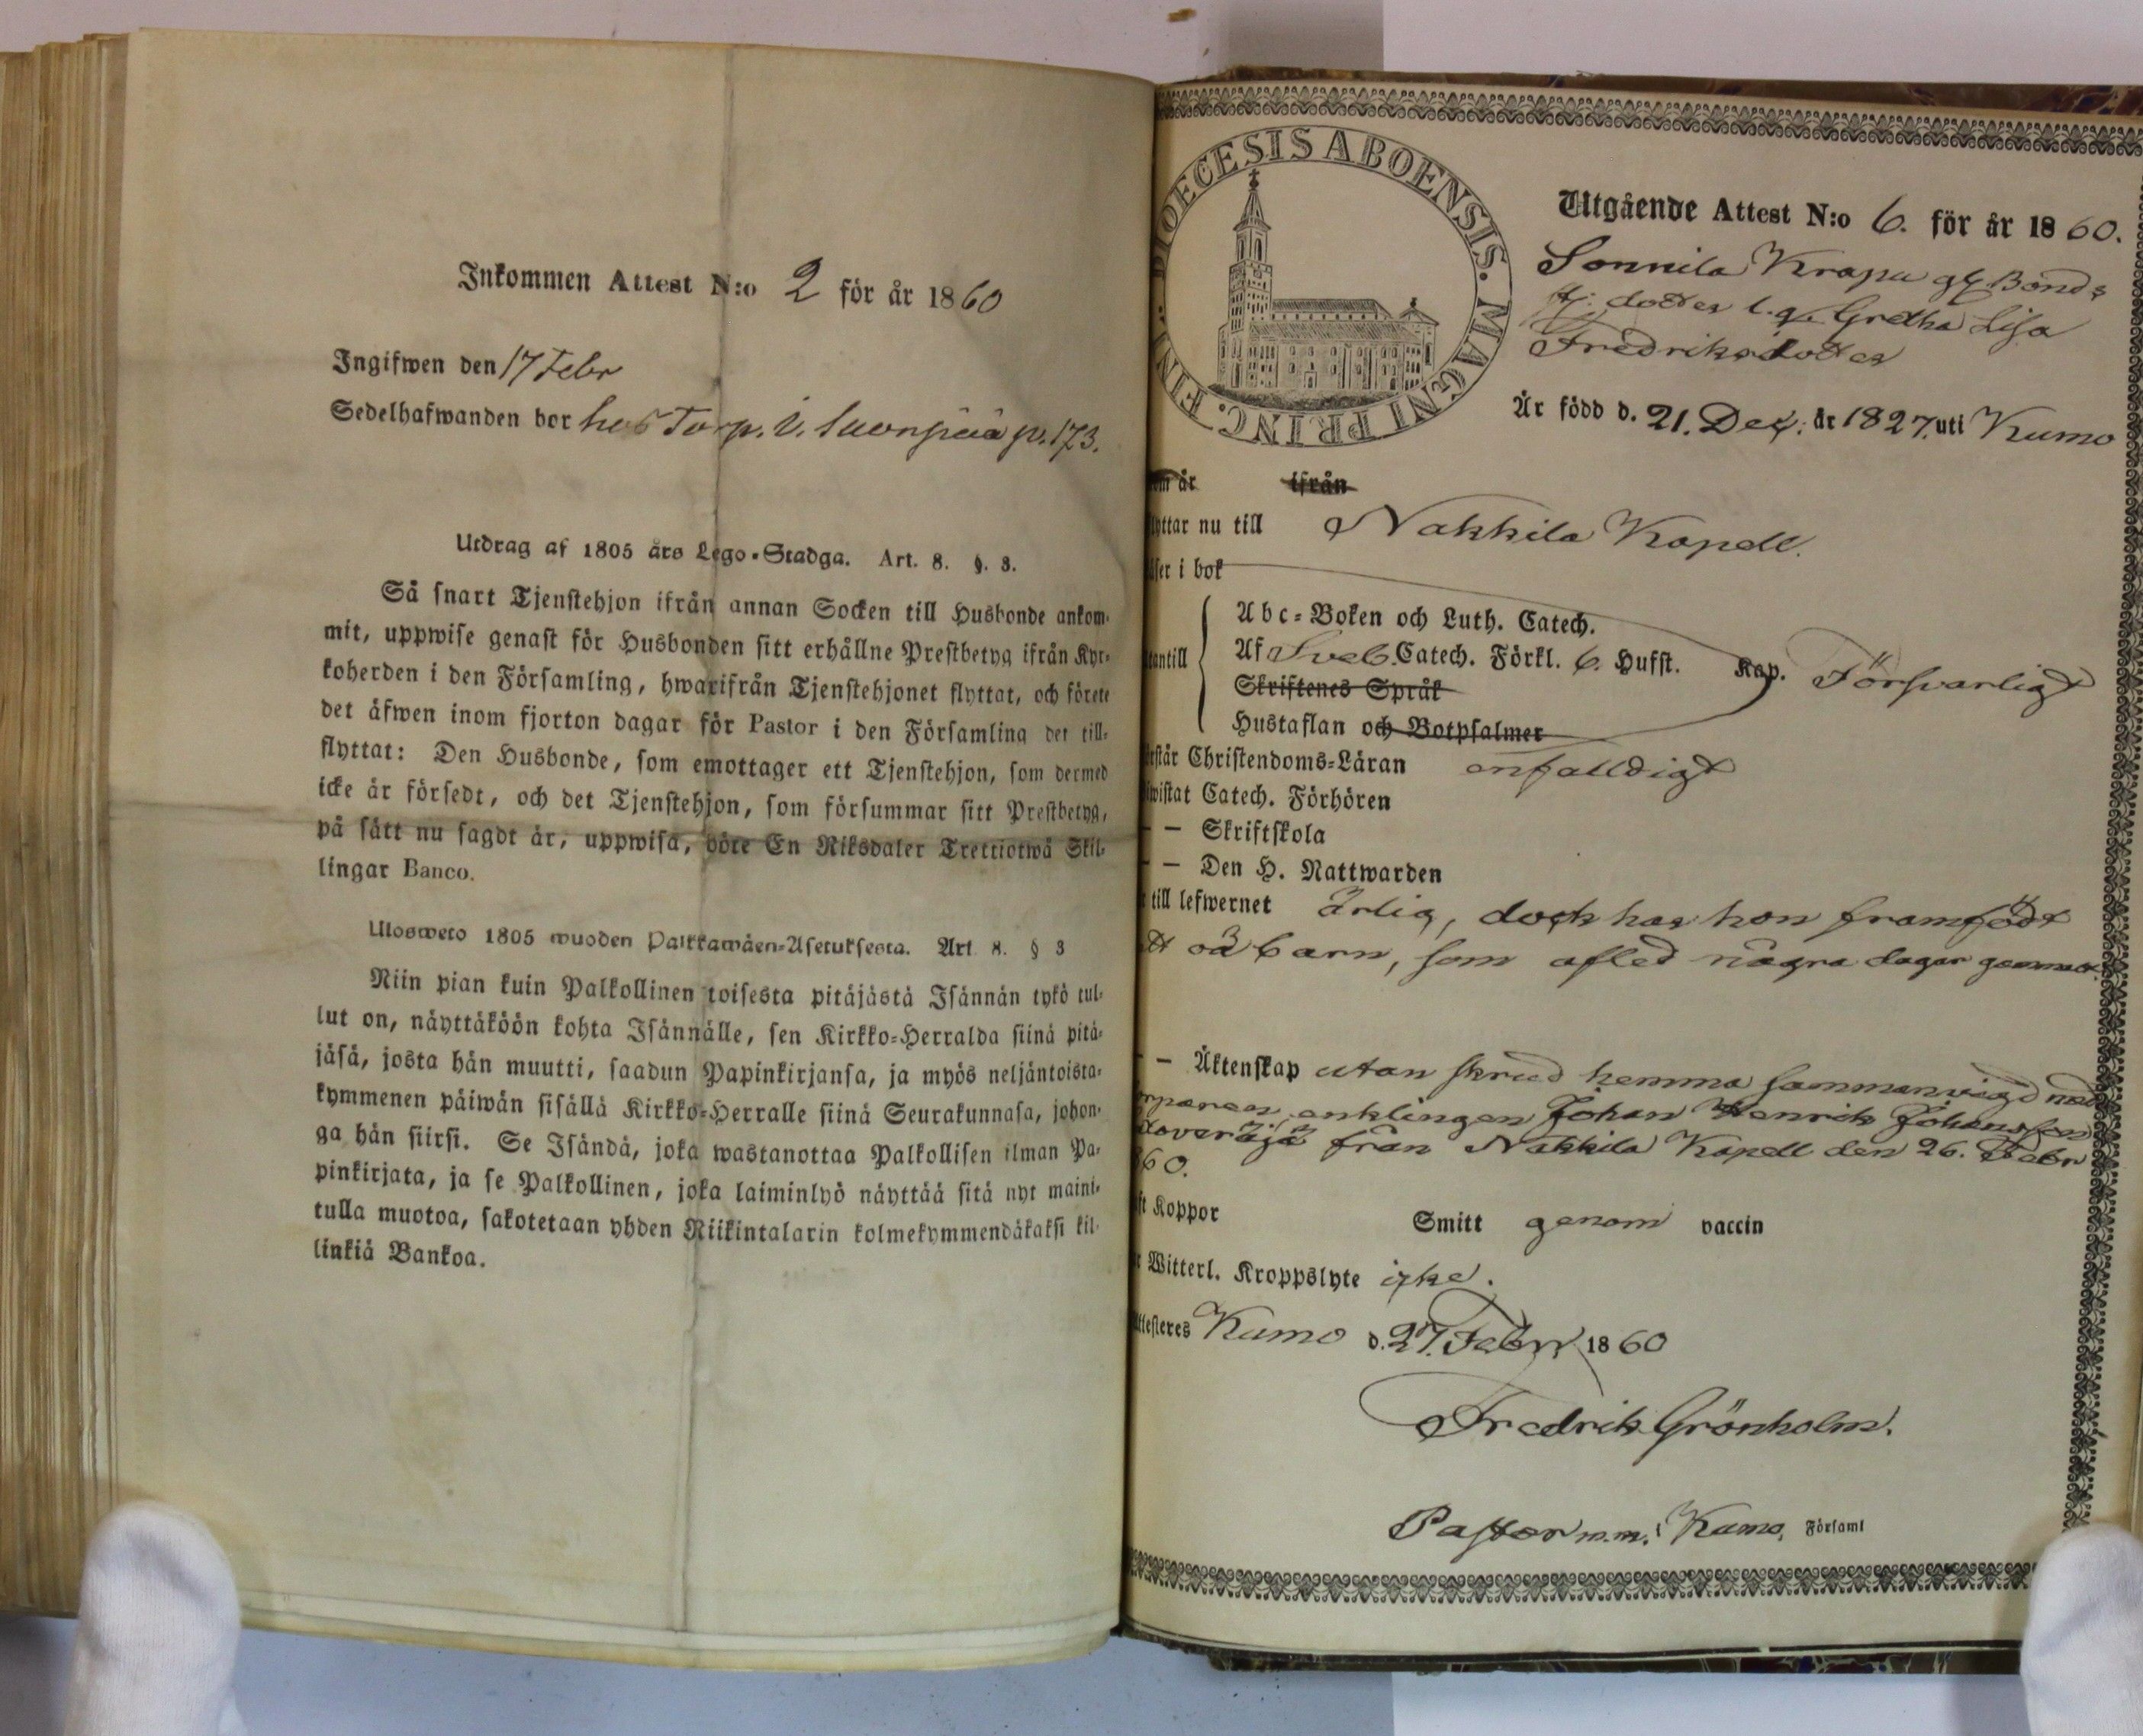 Inkommen Attest N:o 2 för år 1860
Ingifwen den 17 Febr
Sedelhafwanden bor hos Torp. i. Suorpää p. 173.
Utdrag af 1805 års Lego-Stadga. Art. 8. §. 3.
Så snart Tjenstehjon ifrån annan Socken till Husbonde ankom-
mit, uppwise genast för Husbonden sitt erhållne Prestbetyg ifrån Kyr-
koherden i den Församling, hwarifrån Tjenstehjonet flyttat, och förete
det äfwen inom fjorton dagar för Pastor i den Församling det till-
flyttat: Den Husbonde, som emottager ett Tjenstehjon, som dermed
icke är försedt, och det Tjenstehjon, som försummar sitt Prestbetyg,
på sätt nu sagdt är, uppwisa, böte En Riksdaler Trettiotwå Skil-
lingar Banco.
Ulosweto 1805 wuoden Palkkawäen-Asetuksesta. Art. 8. § 3
Niin pian kuin Palkollinen toisesta pitäjästä Isännän tykö tul-
lut on, näyttäköön kohta Isännälle, sen Kirkko-Herralda siinä pitä-
jäsä, josta hän muutti, saadun Papinkirjansa, ja myös neljäntoista-
kymmenen päiwän sisällä Kirkko-Herralle siinä Seurakunnasa, johon-
ga hän siirsi. Se Isändä, joka wastanottaa Palkollisen ilman Pa-
pinkirjata, ja se Palkollinen, joka laiminlyö näyttää sitä nyt maini-
tulla muotoa, sakotetaan yhden Riikintalarin kolmekymmendäkaksi kil-
linkiä Bankoa.
DIOECESIS ABOENSIS. MAGNI PRINC. FINL.
Utgående Attest N:o 6. för år 1860.
Sonnila Krapu Bonde
dotter Gretha Lisa
Fredriksdotter
Är född d. 21. Dec. år 1827. uti Kumo
om är ifrån
lyttar nu till Nakkila Kapell.
äser i bok
Abc-Boken och Luth. Catech.
utantill Af Sveb. Catech. Förkl. 6. Hufst. Kap. Försvarligt
Skriftenes Språk
Hustaflan och Botpsalmer
örstår Christendoms-Läran enfalldigt
wistat Catech. Förhören
— — Skriftskola
— — Den H. Nattwarden
till lefwernet ärlig, dock har hon framfödt
ett oä barn, som afled några dagar gammal.
— — Äktenskap utan skrud hemma sammanvigd med
orparen enklingen Johan Henrik Johansson
från Nakkila Kapell den 26. Febr
860.
ft Koppor Smitt genom vaccin
Witterl. Kroppslyte icke.
ttesteres Kumo d. 27. Febr 1860
Fredrik Grönholm.
Pastor m.m. i Kumo, Församl